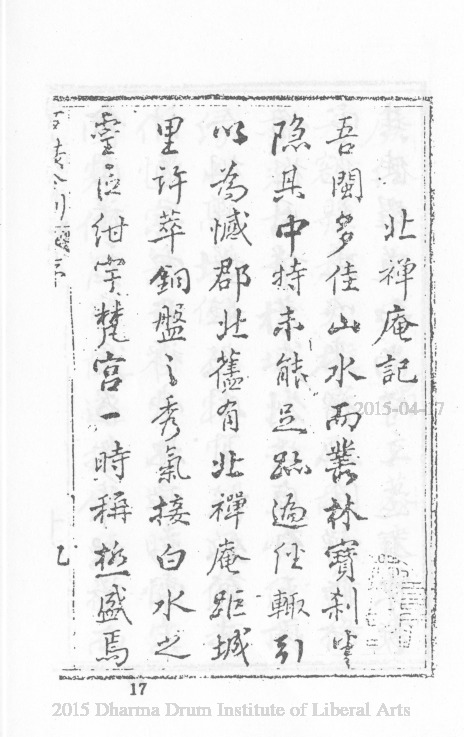 北禪庵記
吾閩多佳山水而叢林寶剎
隐其中特未能足跡遍任輒引
以為憾郡北舊有北禪庵距城
里許萃銅盤之秀氣接白水之
靈泒紺宇梵宮一時稱極盛焉
2015-04-17
17
2015 Dharma Drum Institute of Liberal Arts